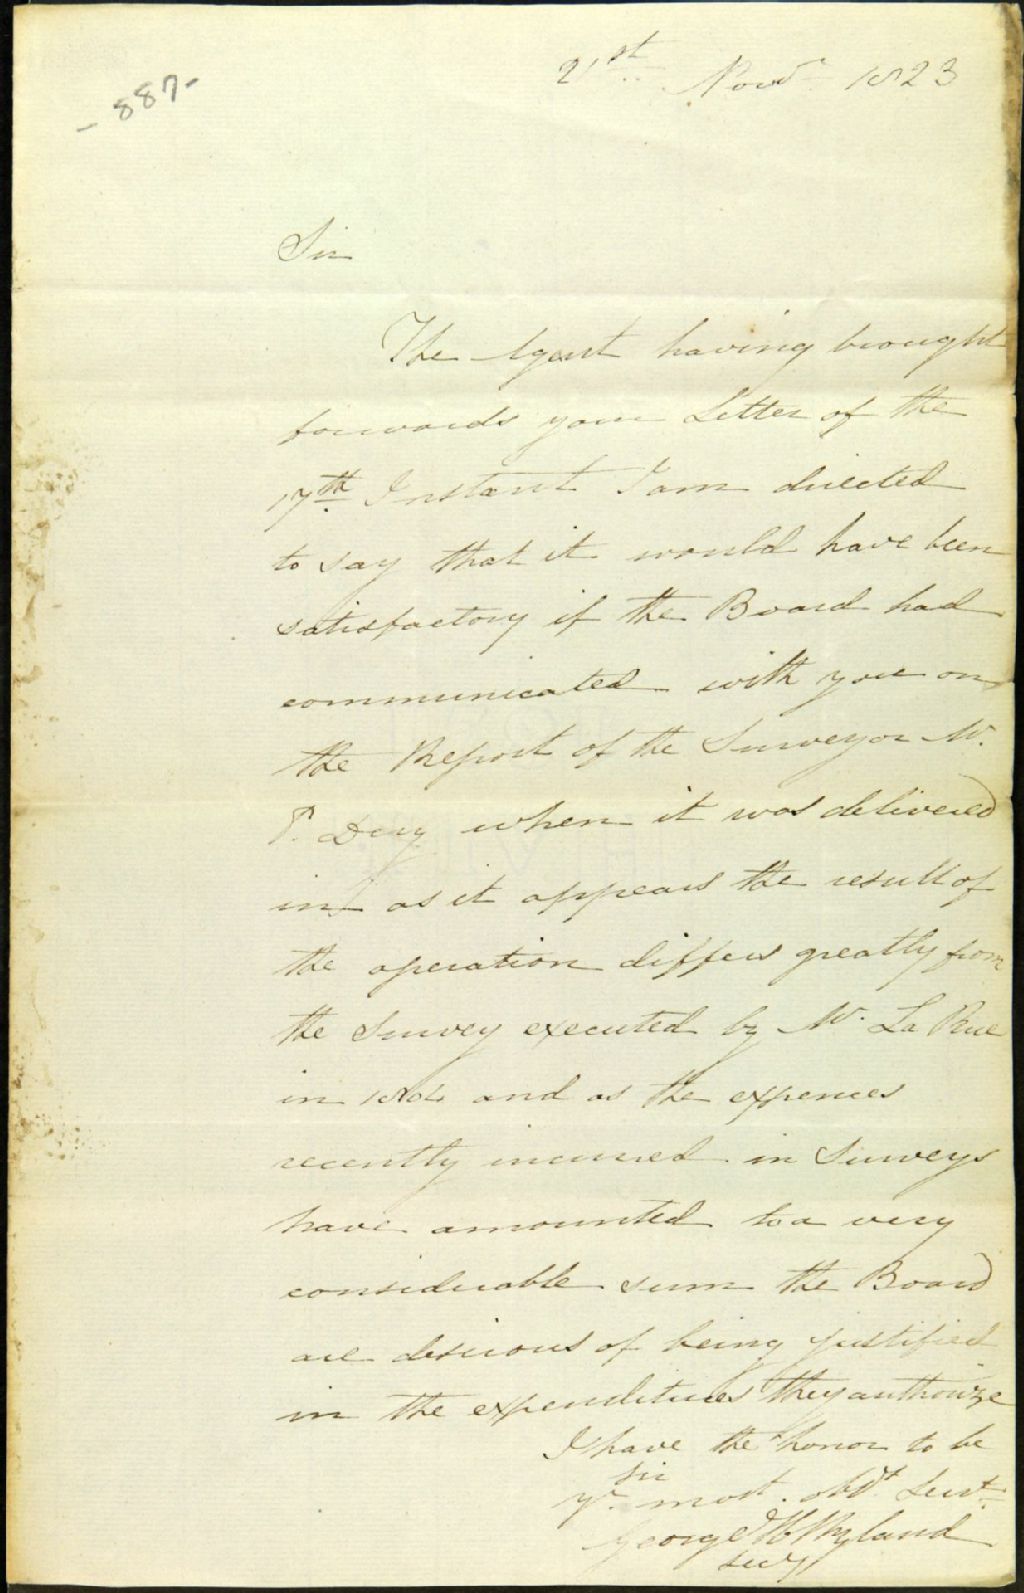 - 887 -
21st Novr 1823
Sir
The Agent having brought
forwards your Letter of the
17th Instant I am directed
to say that it would have been
satisfactory if the Board had
communicated with you on
the Report of the Surveyor Mr.
P. Dery when it was delivered
in as it appears the result of
the operation differs greatly from
the Survey executed by Mr. La Rue
in and as the expences
recently incurred in Surveys
have amounted to a very
considerable sum the Board
are desirous of being justified
in the expenditures they authorize
I have the honor to be
Sir
yr. most. obdt Servt.
George H Ryland
Secy